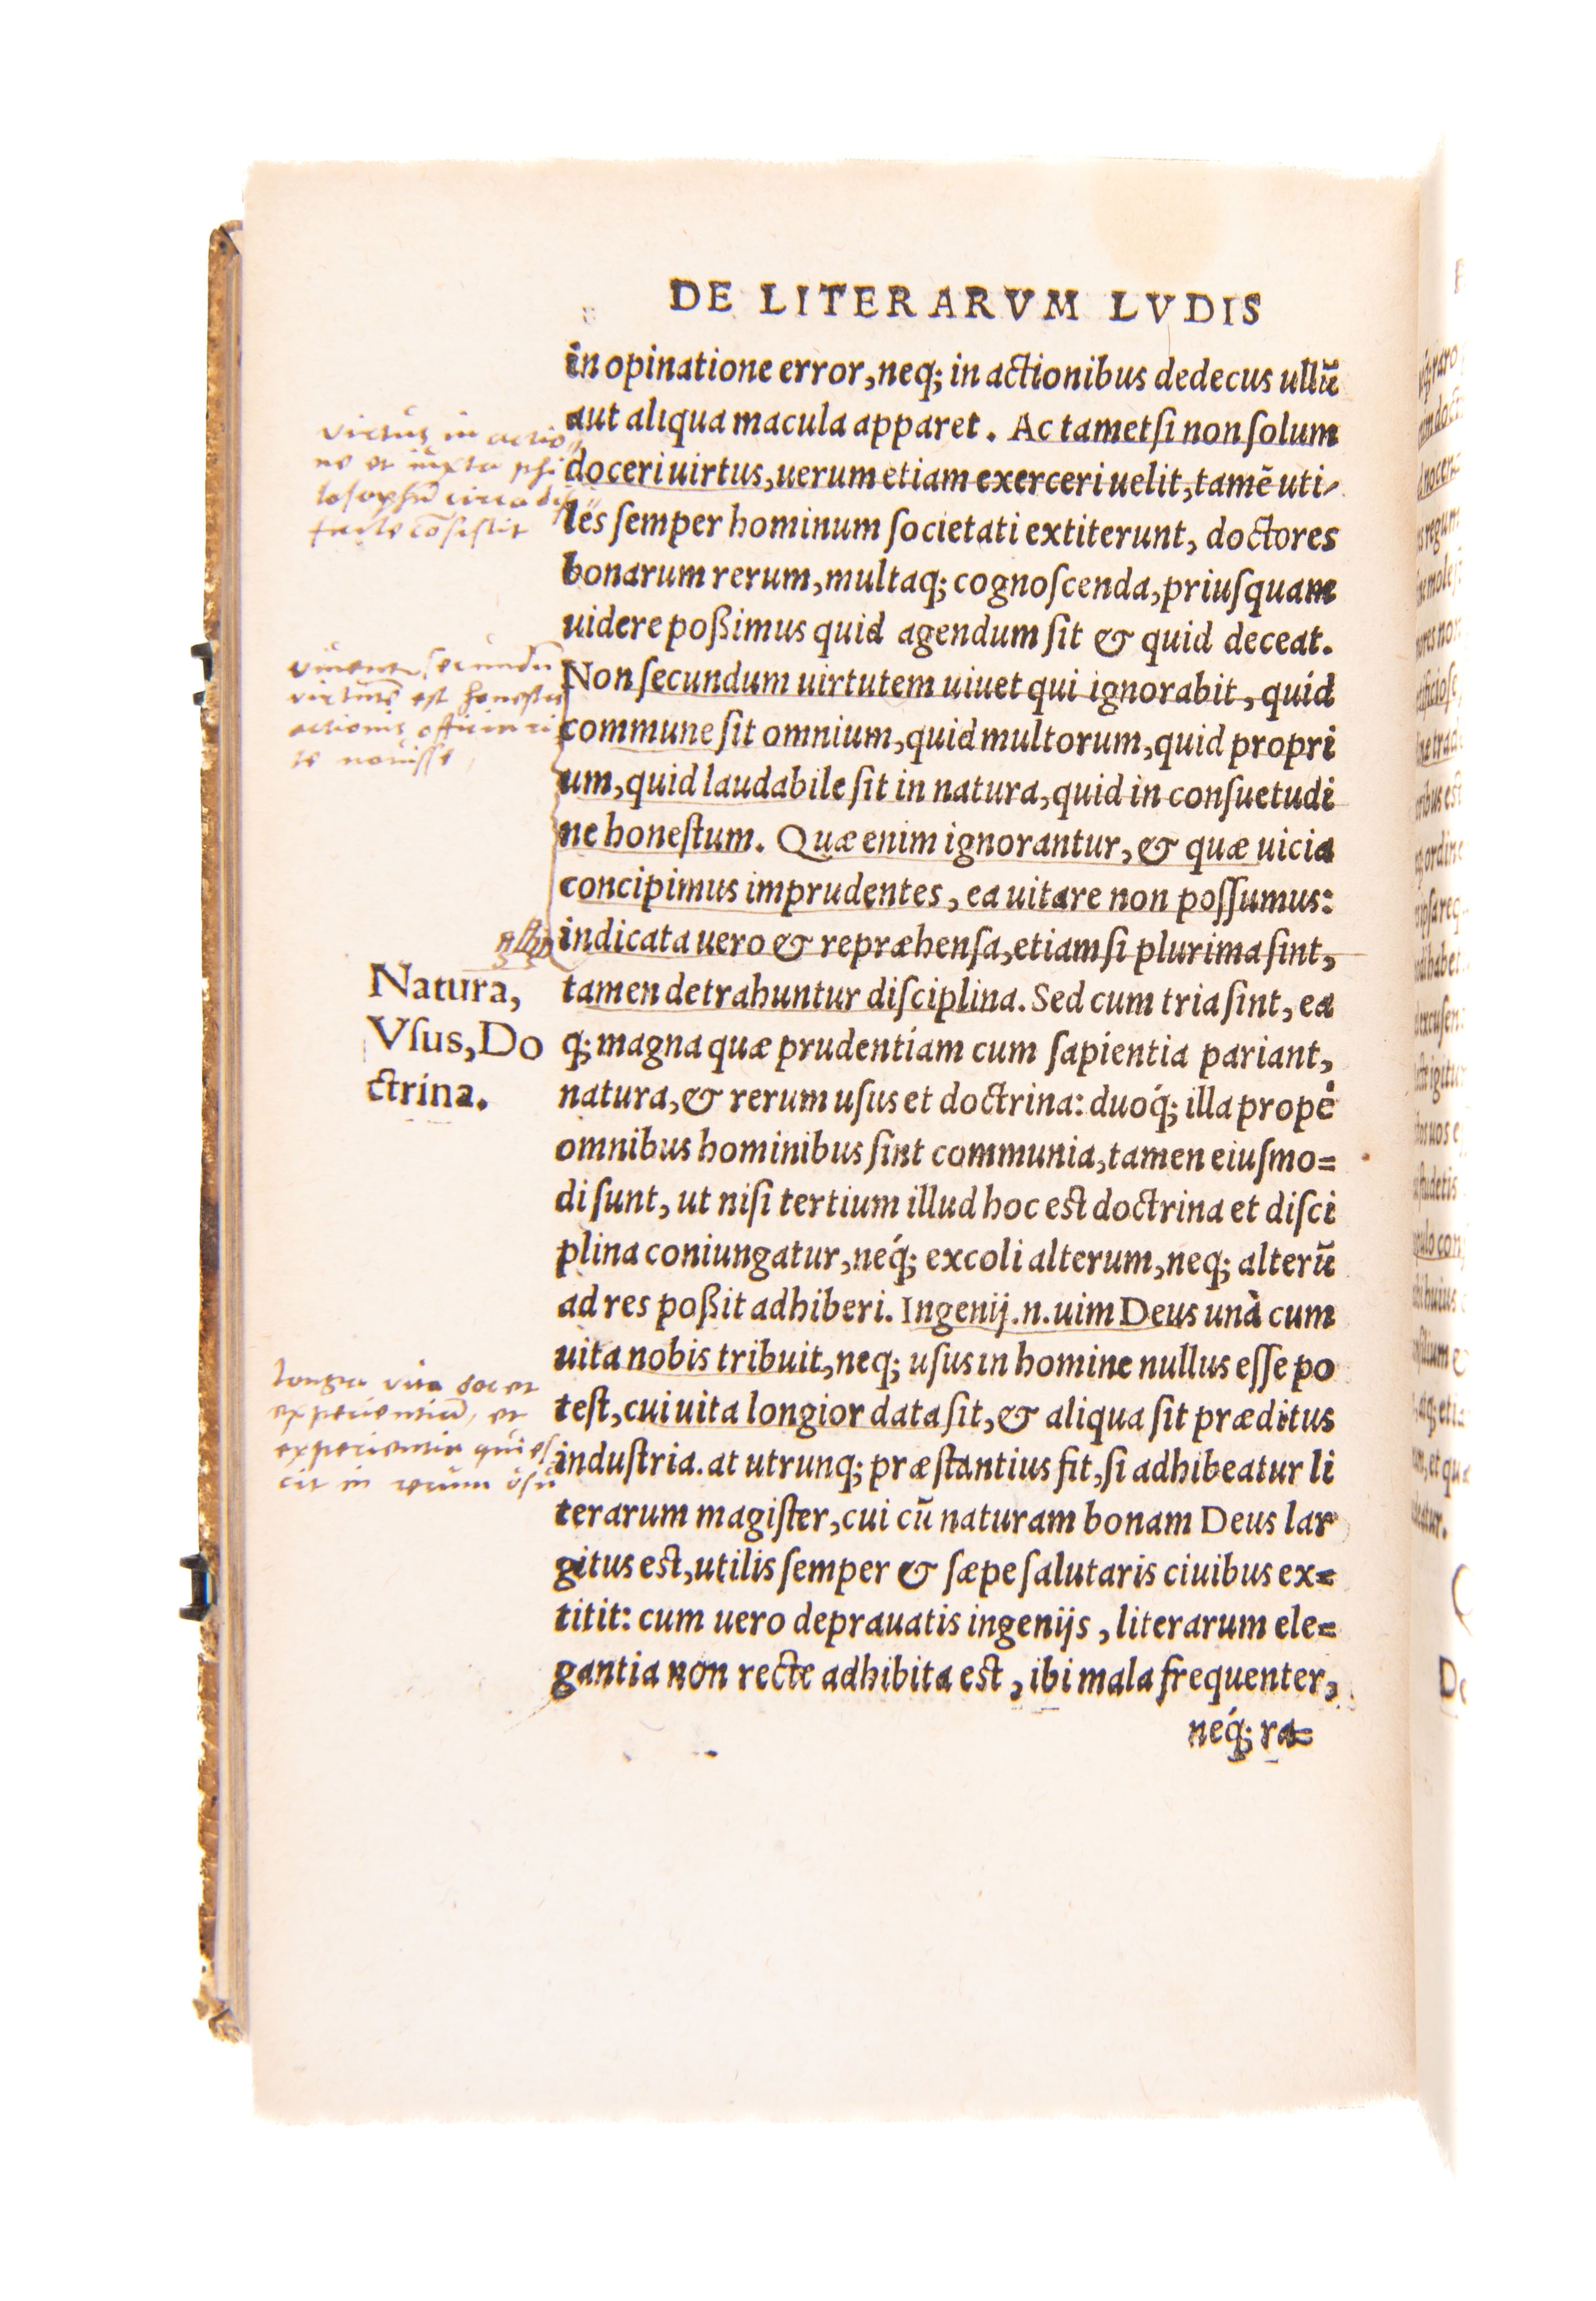 DE LITERARVM LVDIS
in opinatione error, neq; in actionibus dedecus ullũ
aut aliqua macula apparet. Ac tametſi non ſolum
doceri uirtus, uerum etiam exerceri uelit, tamẽ uti-
les ſemper hominum ſocietati extiterunt, doctores
bonarum rerum, multaq; cognoſcenda, priuſquam
uidere poßimus quid agendum ſit & quid deceat.
Non ſecundum uirtutem uiuet qui ignorabit, quid
commune ſit omnium, quid multorum, quid propri
um, quid laudabile ſit in natura, quid in conſuetudi
ne honeſtum. Quæ enim ignorantur, & quæ uicia
concipimus imprudentes, ea uitare non poſſumus:
indicata uero & repræhenſa, etiam ſi plurima ſint,
tamen detrahuntur diſciplina. Sed cum tria ſint, ea
q; magna quæ prudentiam cum ſapientia pariant,
natura, & rerum uſus et doctrina: duoq́; illa propè
omnibus hominibus ſint communia, tamen eiuſmo=
di ſunt, ut niſi tertium illud hoc est doctrina et diſci
plina coniungatur, neq́; excoli alterum, neq; alterũ
ad res poßit adhiberi. Ingenij.n.uim Deus unà cum
uita nobis tribuit, neq; uſus in homine nullus eſſe po
test, cui uita longior data ſit, & aliqua ſit præditus
induſtria. at utrunq; præſtantius fit, ſi adhibeatur li
terarum magiſter, cui cũ naturam bonam Deus lar
gitus est, utilis ſemper & ſæpe ſalutaris ciuibus ex=
titit: cum uero deprauatis ingenijs, literarum ele=
gantia non recte adhibita est, ibi mala frequenter,
neq́; ra=
Natura,
Vſus, Do
ctrina.
virtus in actio
ne et iuxta phi
losophũ circa dif
ficile cõsistit
secundũ
virtutẽ est honestas
actionis
novisse
longa vita docet
experientiã, et
experientia
cit in rerum usu